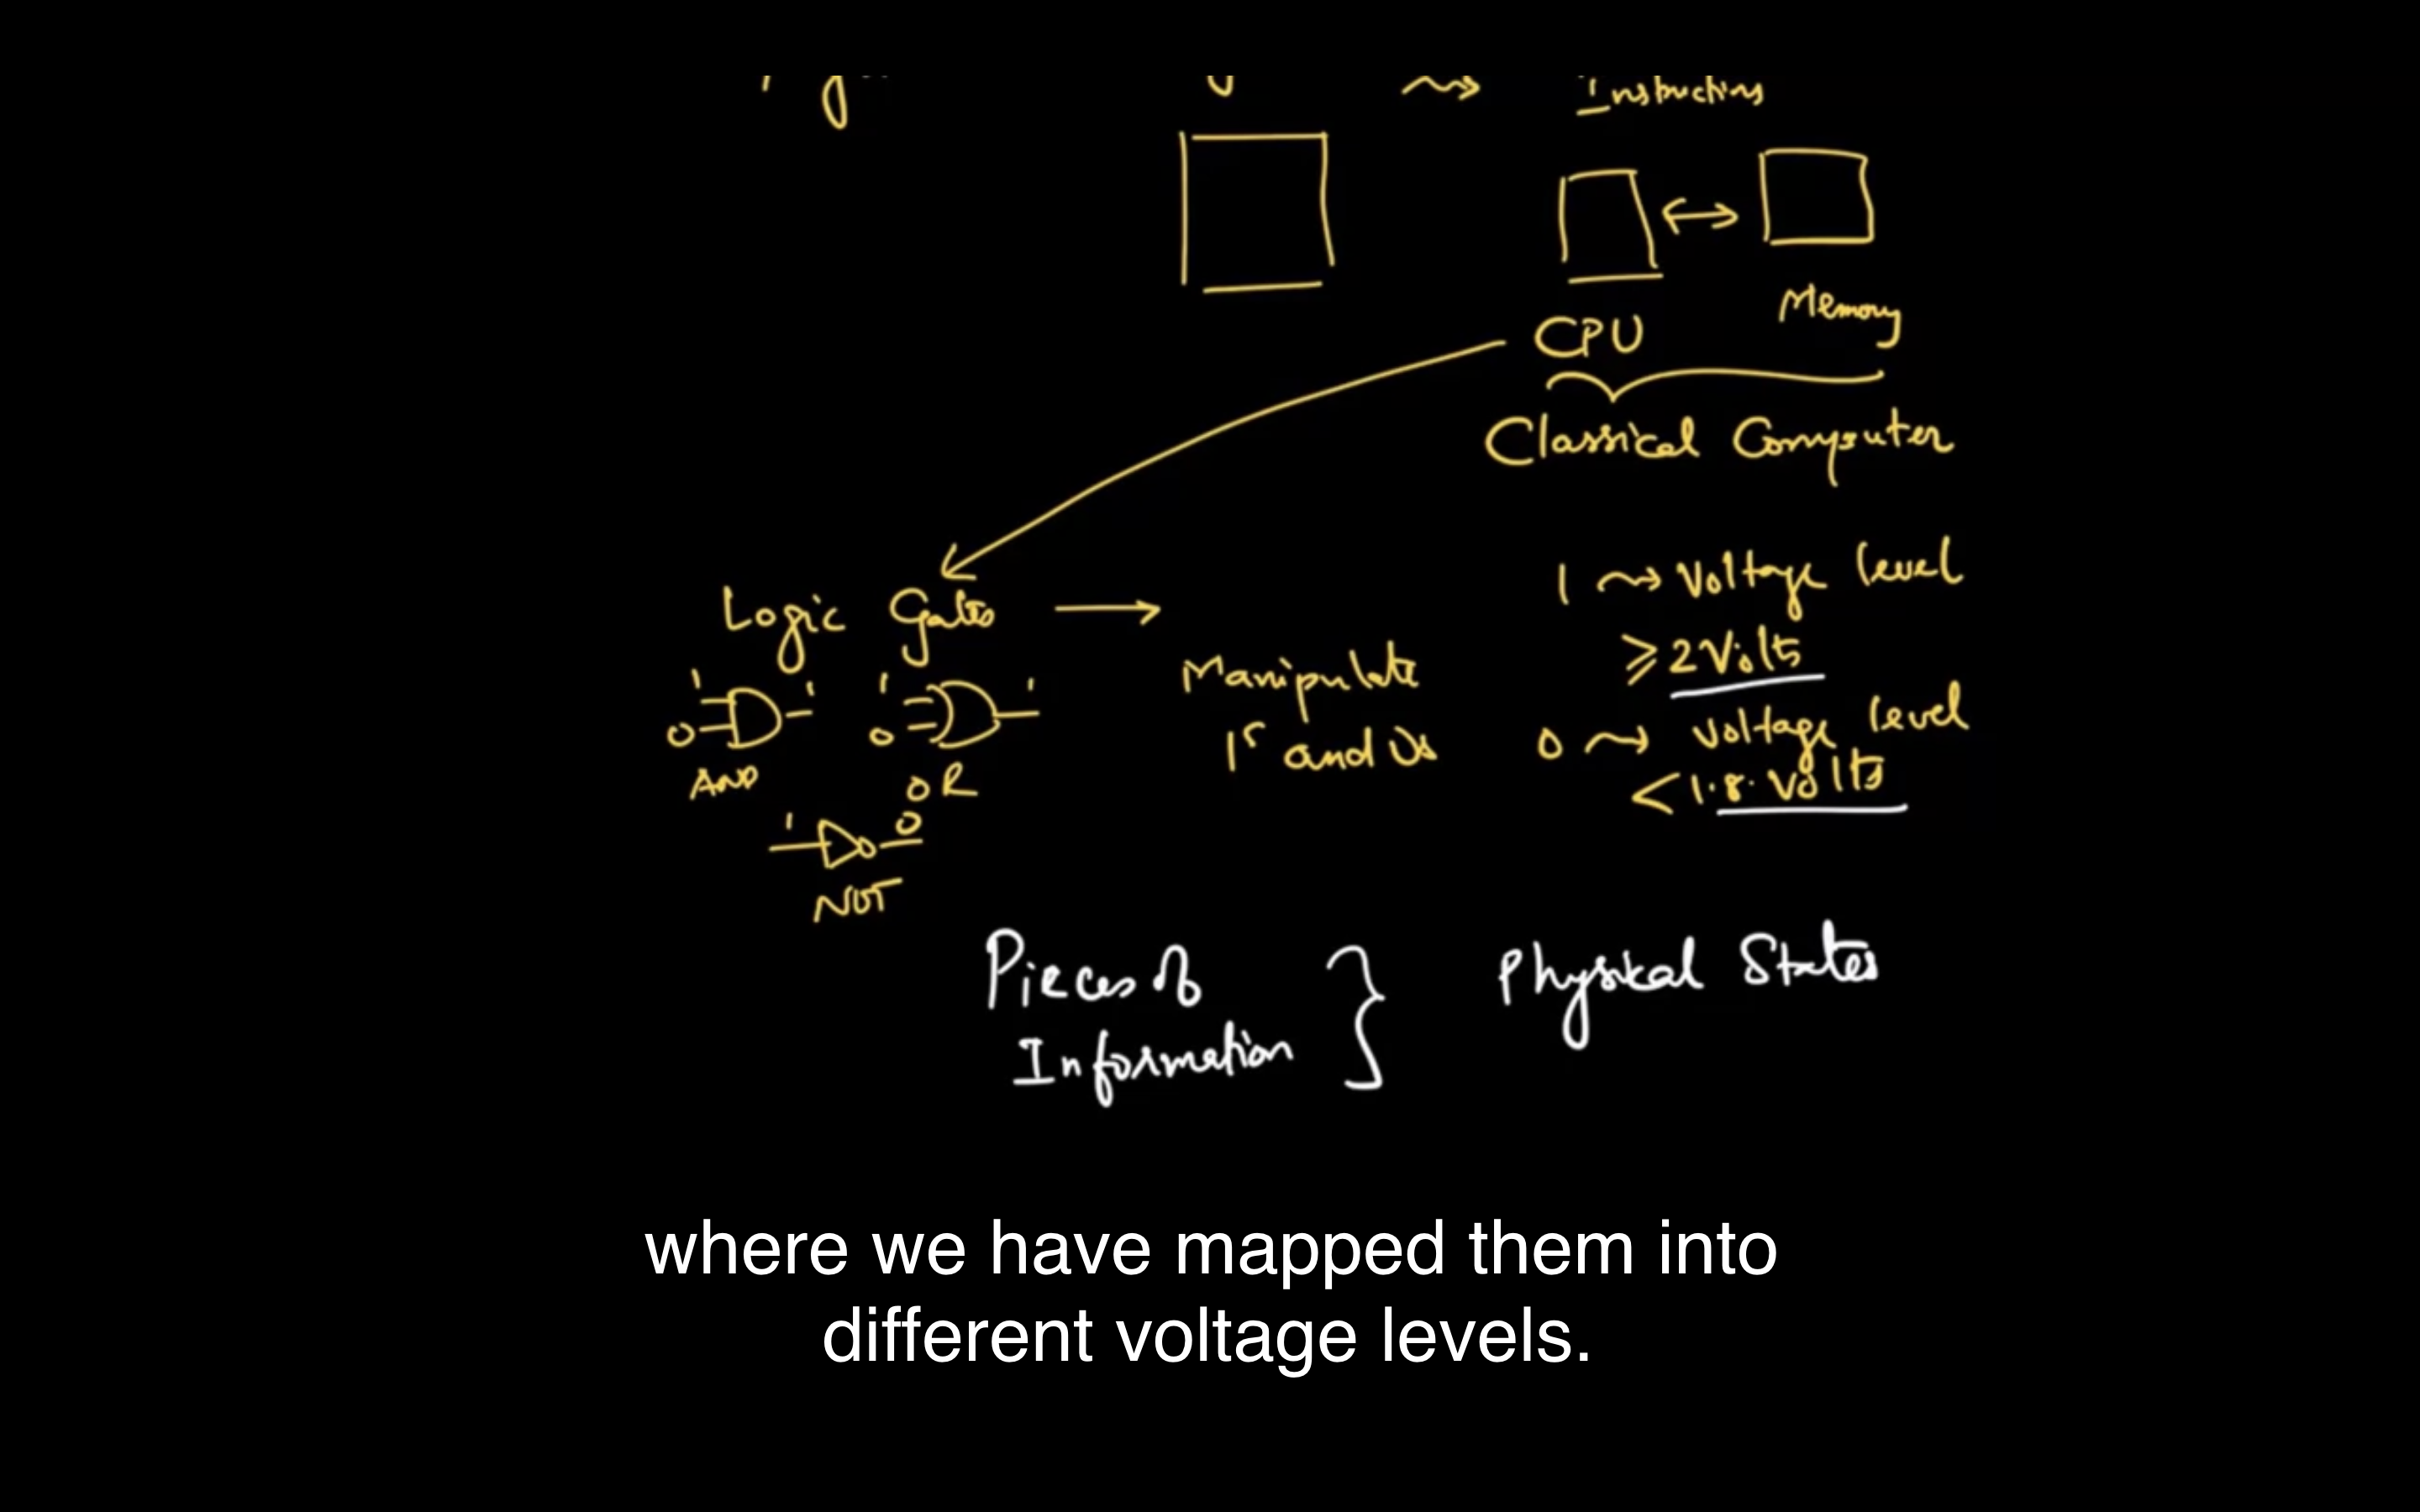 Instructions
CPU
Memory
Classical Computer
Logic Gates
1 1
0
AND
1 1
0
OR
1 0
NOT
Manipulate
1s and 0s
1 Voltage level
≥ 2 Volts
0 Voltage level
< 1.8 Volts
Pieces of
Information
Physical States
where we have mapped them into
different voltage levels.